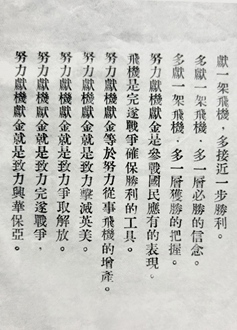 獻一架飛機．多接近一步勝利。
多獻一架飛機．多一層必勝的信念。
多獻一架飛機．多一層獲勝的把握。
努力獻機獻金是參戰國民應有的表現。
飛機是完遂戰爭確保勝利的工具。
努力獻機獻金等於努力從事飛機的增產。
努力獻機獻金就是致力擊滅英美。
努力獻機獻金就是致力爭取解放。
努力獻機獻金就是致力完遂戰爭．
努力獻機獻金就是致力興華保亞。